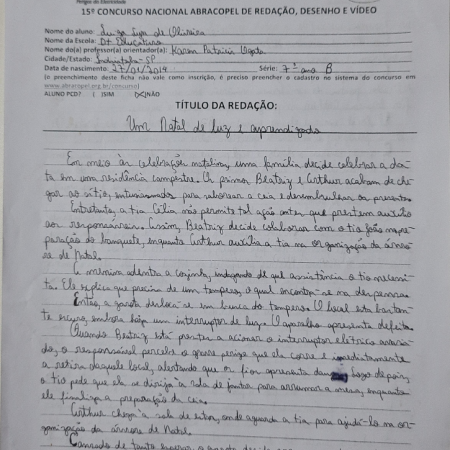 15º CONCURSO NACIONAL ABRACOPEL DE REDAÇÃO, DESENHO E VÍDEO
Nome do aluno: de Oliveira
Nome da Escola: D+ Educativa
Nome do(a) professor(a) orientador(a): Karen Patricia
Cidade/Estado: Indaiatuba - SP
Data de nascimento: 27/01/2014 Série: 7º ano B
(o preenchimento deste ficha não vale como inscrição, é preciso preencher o cadastro no sistema do concurso em
www.abracopel.org.br/concurso)
ALUNO PCD? ( )SIM (X)NÃO
TÍTULO DA REDAÇÃO:
Um Natal de luz e aprendizado
Em meio às celebrações natalinas, uma família decide celebrar a da-
ta em uma residência campestre. Os primos Beatriz e Arthur acabam de che-
gar ao sítio, entusiasmados para saborear a ceia e desembrulhar os presentes.
Entretanto, a tia Célia não permite tal ação antes que prestem auxílio
aos responsáveis. Assim, Beatriz decide colaborar com o tio João na pre-
paração do banquete, enquanto Arthur auxilia a tia na organização da árvo-
re de Natal.
A menina adentra a cozinha, indagando de que assistência o tio necessi-
ta. Ele replica que precisa de um tempero, o qual encontra-se na despensa.
Então, a garota desloca-se em busca do tempero. O local está bastan-
te escuro, embora haja um interruptor de luz. O aparelho apresenta defeito.
Quando Beatriz está prestes a acionar o interruptor elétrico
o responsável percebe o grave perigo que ela corre e imediatamente
a retira daquele local, alertando que os fios apresenta danos. Logo depois,
o tio pede que ela se dirija à sala de jantar para arrumar a mesa, enquanto
ele finaliza a preparação da ceia.
Arthur chega à sala de estar, onde aguarda a tia para ajudá-la na or-
ganização da árvore de Natal.
Cansado de tanto esperar, o garoto